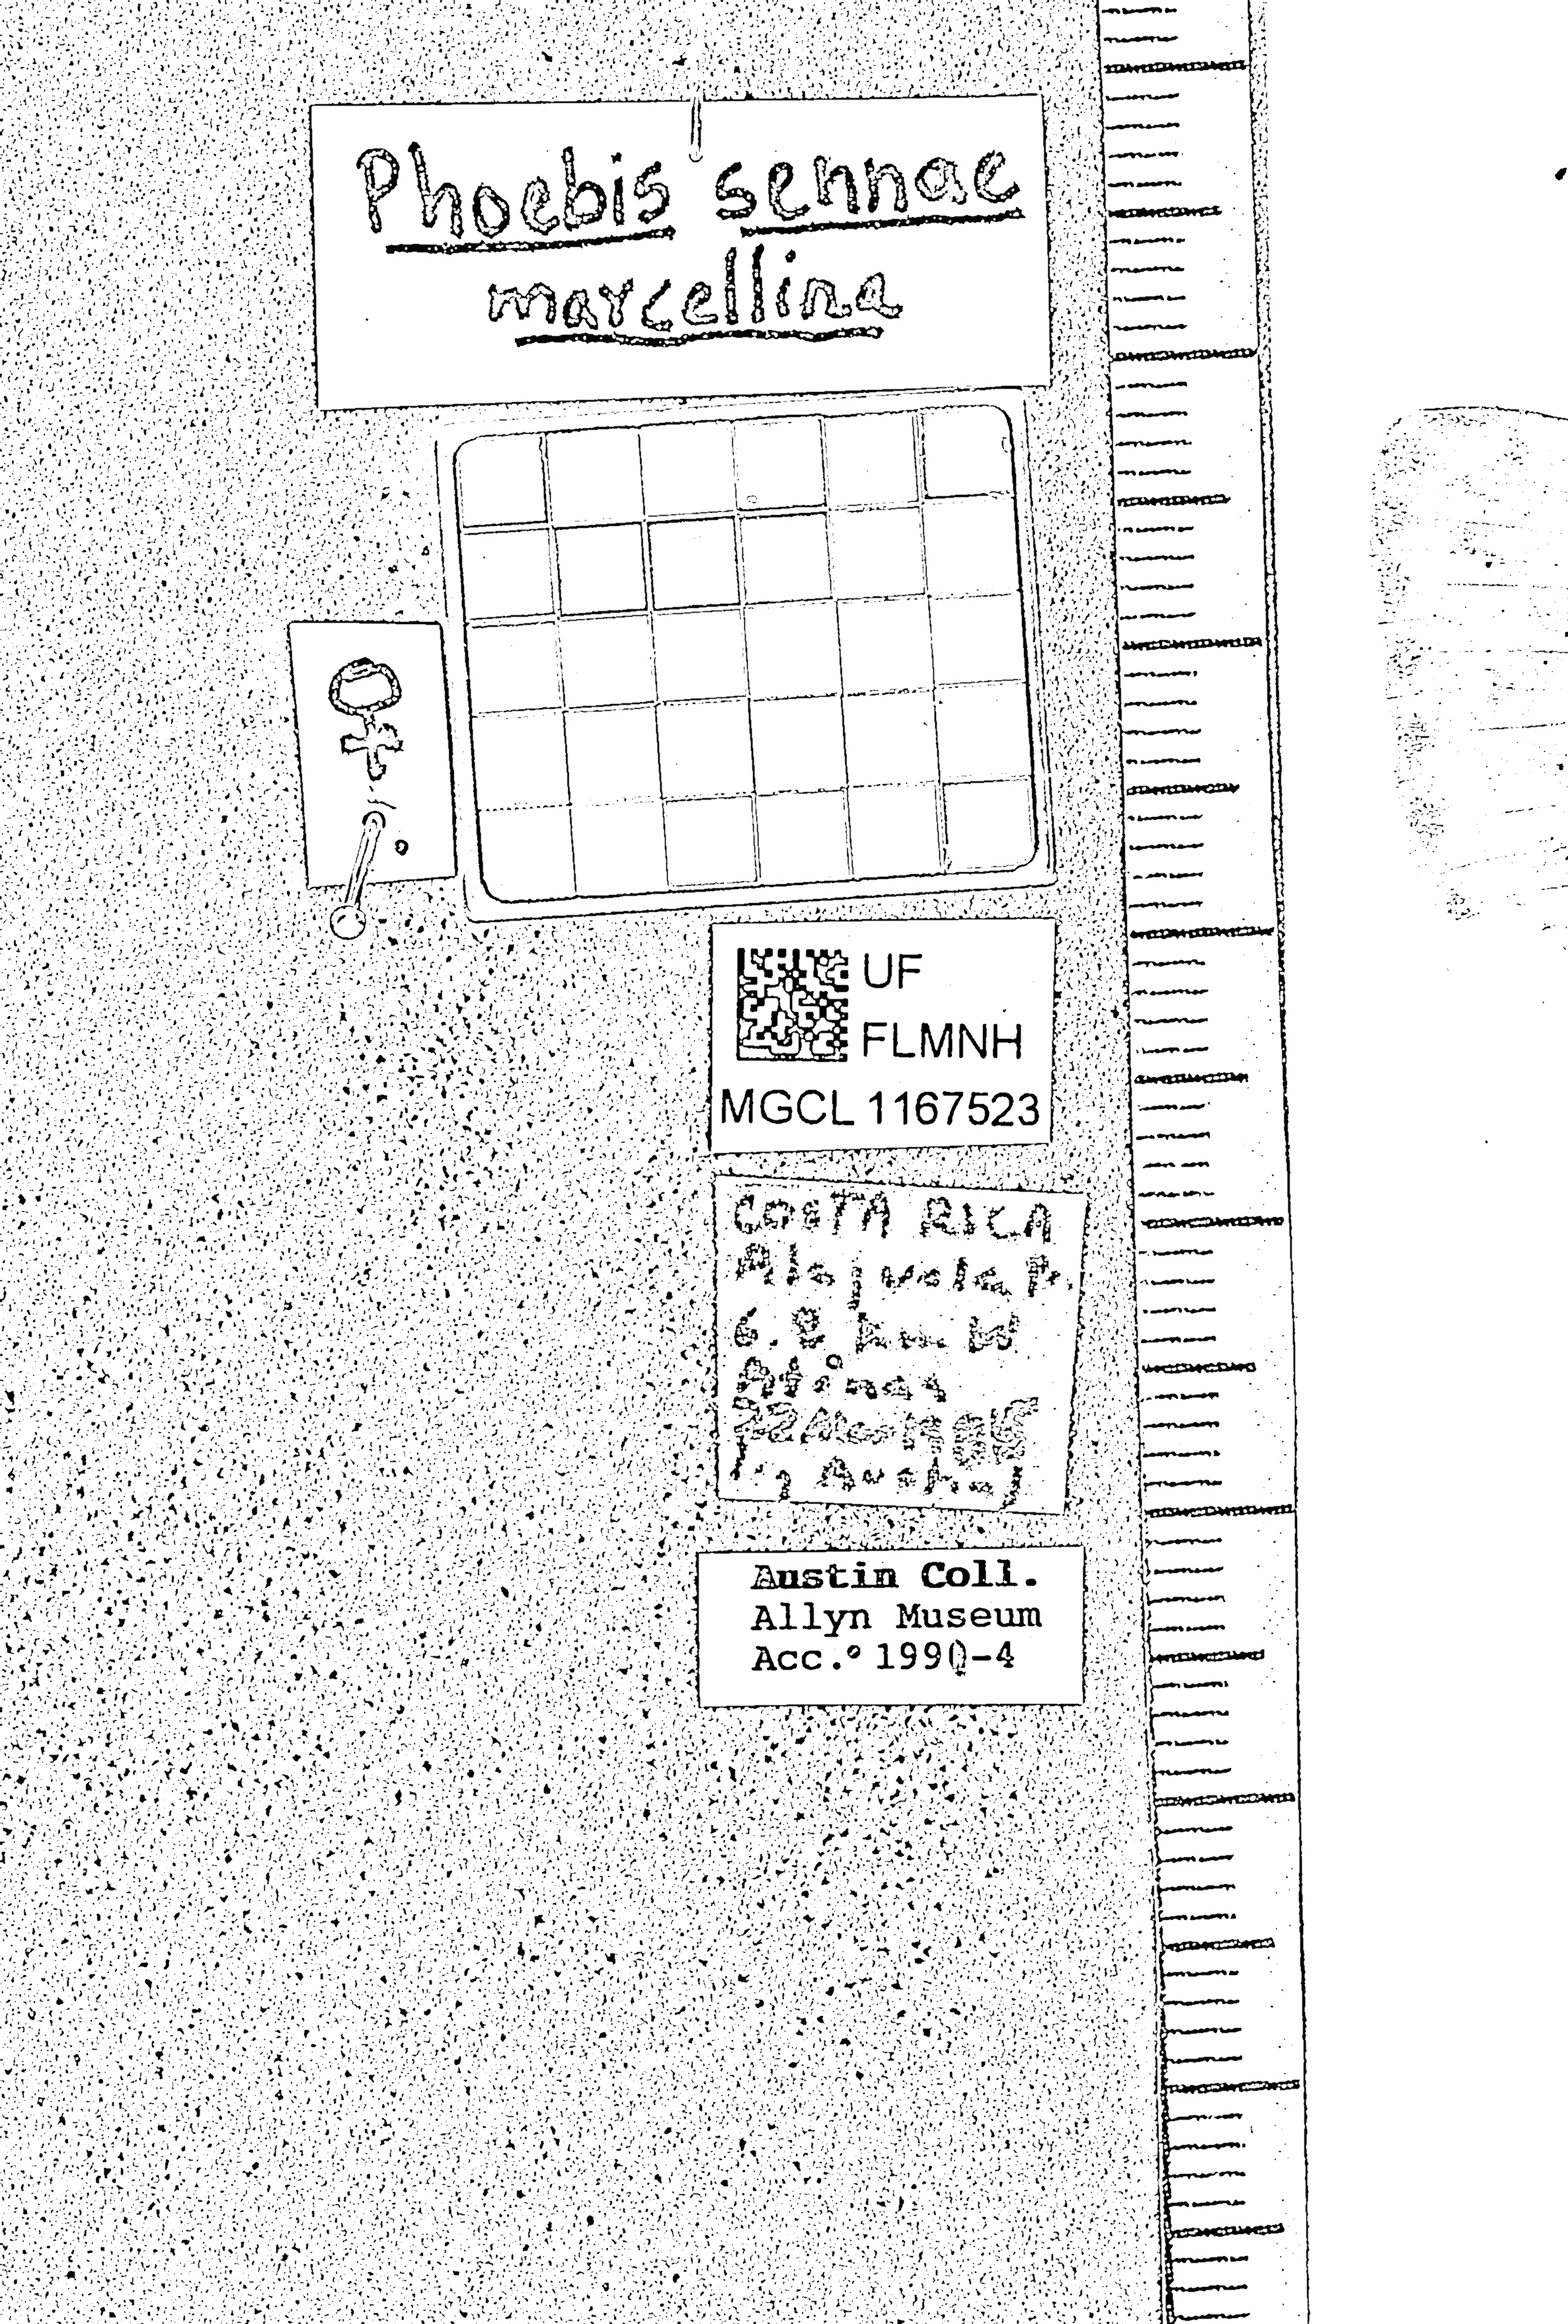 Phoebis sennae
marcellina
♀
UF
FLMNH
MGCL 1167523
COSTA RICA
Alajuela Pr.
6.8 km W
Atenas
Austin Coll.
Allyn Museum
Acc. 1990-4